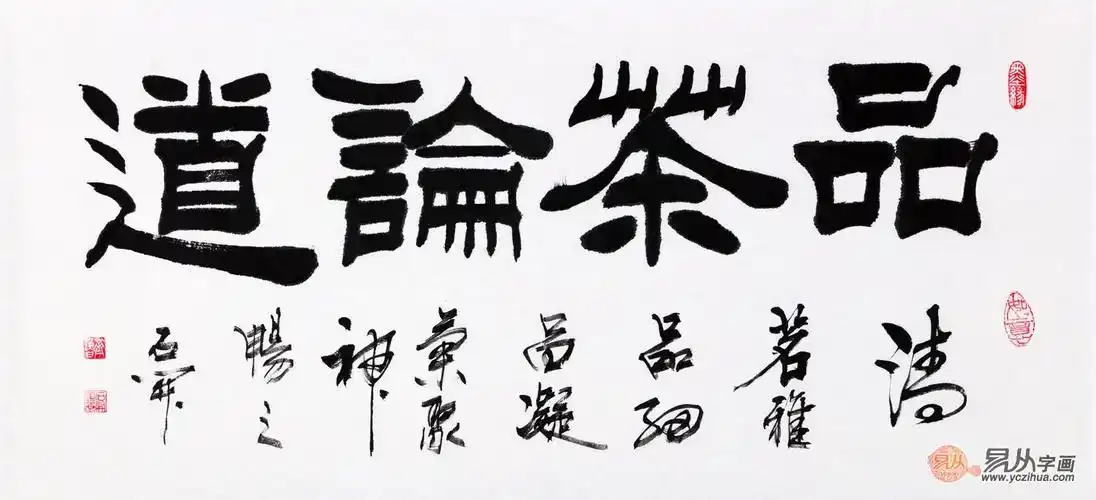 品茶論道
清
茗雅
品細
品凝
氣聚
神
暢之
石開
墨緣
如意
易从
易从字画
www.yczihua.com